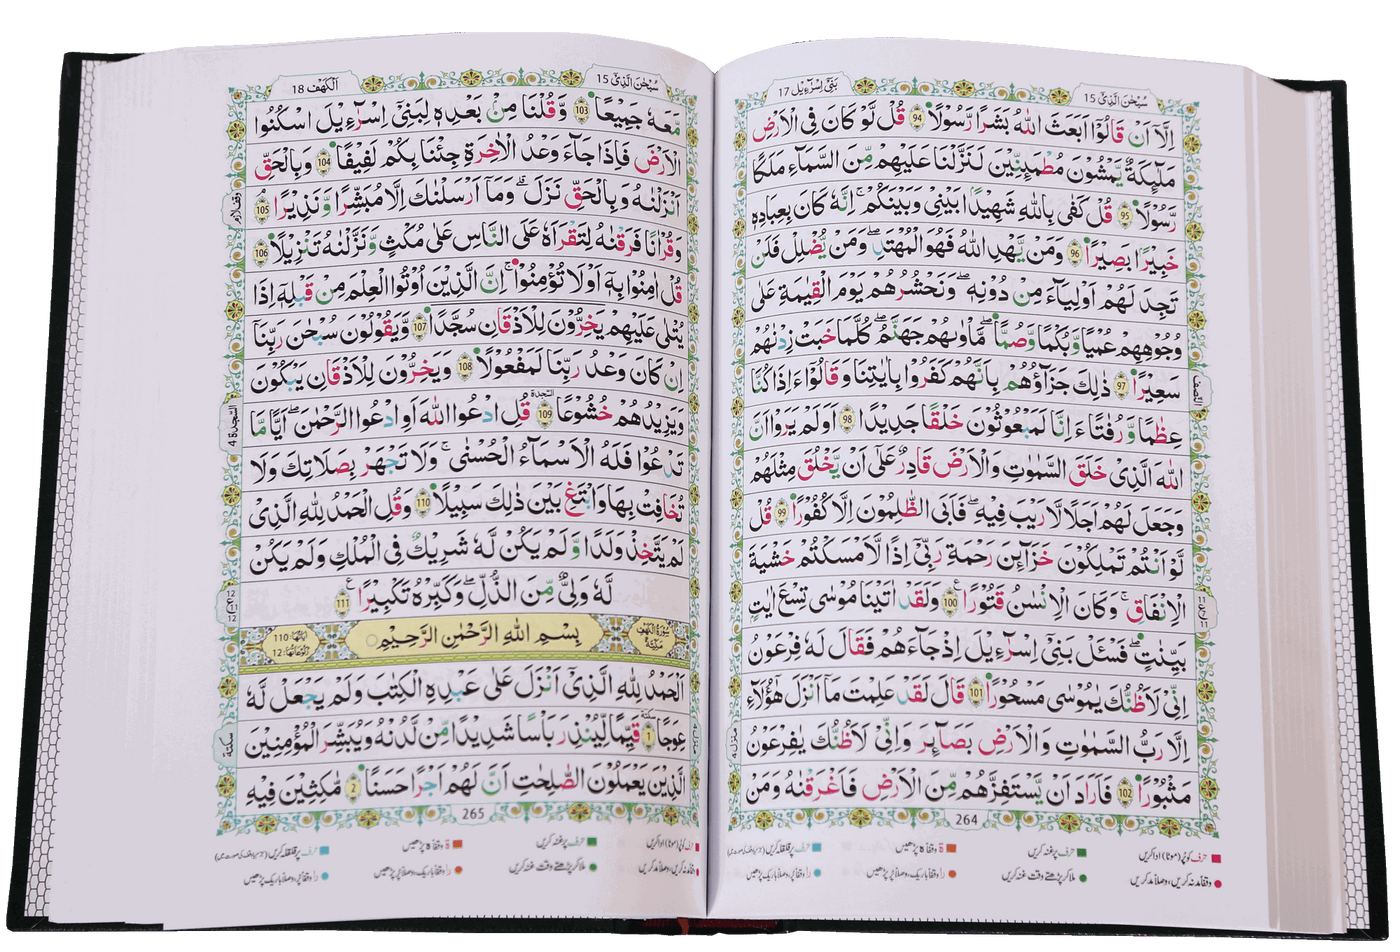 سُبْحٰنَ الَّذِیْ 15
بَنِیْۤ اِسْرَآءِیْل 17
اِلَّاۤ اَنْ قَالُوْۤا اَبَعَثَ اللّٰهُ بَشَرًا رَّسُوْلًا 94 قُلْ لَّوْ كَانَ فِی الْاَرْضِ
مَلٰٓىِٕكَةٌ یَّمْشُوْنَ مُطْمَىِٕنِّیْنَ لَنَزَّلْنَا عَلَیْهِمْ مِّنَ السَّمَآءِ مَلَكًا
رَّسُوْلًا 95 قُلْ كَفٰی بِاللّٰهِ شَهِیْدًۢا بَیْنِیْ وَبَیْنَكُمْ ؕ اِنَّهٗ كَانَ بِعِبَادِهٖ
خَبِیْرًۢا بَصِیْرًا 96 وَمَنْ یَّهْدِ اللّٰهُ فَهُوَ الْمُهْتَدِ ۚ وَمَنْ یُّضْلِلْ فَلَنْ
تَجِدَ لَهُمْ اَوْلِیَآءَ مِنْ دُوْنِهٖ ؕ وَنَحْشُرُهُمْ یَوْمَ الْقِیٰمَةِ عَلٰی
وُجُوْهِهِمْ عُمْیًا وَّبُكْمًا وَّصُمًّا ؕ مَاْوٰىهُمْ جَهَنَّمُ ؕ كُلَّمَا خَبَتْ زِدْنٰهُمْ
سَعِیْرًا 97 ذٰلِكَ جَزَآؤُهُمْ بِاَنَّهُمْ كَفَرُوْا بِاٰیٰتِنَا وَقَالُوْۤا ءَاِذَا كُنَّا
عِظَامًا وَّرُفَاتًا ءَاِنَّا لَمَبْعُوْثُوْنَ خَلْقًا جَدِیْدًا 98 اَوَلَمْ یَرَوْا اَنَّ
اللّٰهَ الَّذِیْ خَلَقَ السَّمٰوٰتِ وَالْاَرْضَ قَادِرٌ عَلٰۤی اَنْ یَّخْلُقَ مِثْلَهُمْ
وَجَعَلَ لَهُمْ اَجَلًا لَّا رَیْبَ فِیْهِ ؕ فَاَبَی الظّٰلِمُوْنَ اِلَّا كُفُوْرًا 99 قُلْ
لَّوْ اَنْتُمْ تَمْلِكُوْنَ خَزَآىِٕنَ رَحْمَةِ رَبِّیْۤ اِذًا لَّاَمْسَكْتُمْ خَشْیَةَ
الْاِنْفَاقِ ؕ وَكَانَ الْاِنْسَانُ قَتُوْرًا 100 وَلَقَدْ اٰتَیْنَا مُوْسٰی تِسْعَ اٰیٰتٍۭ
بَیِّنٰتٍ فَسْـَٔلْ بَنِیْۤ اِسْرَآءِیْلَ اِذْ جَآءَهُمْ فَقَالَ لَهٗ فِرْعَوْنُ
اِنِّیْ لَاَظُنُّكَ یٰمُوْسٰی مَسْحُوْرًا 101 قَالَ لَقَدْ عَلِمْتَ مَاۤ اَنْزَلَ هٰۤؤُلَآءِ
اِلَّا رَبُّ السَّمٰوٰتِ وَالْاَرْضِ بَصَآىِٕرَ ۚ وَاِنِّیْ لَاَظُنُّكَ یٰفِرْعَوْنُ
مَثْبُوْرًا 102 فَاَرَادَ اَنْ یَّسْتَفِزَّهُمْ مِّنَ الْاَرْضِ فَاَغْرَقْنٰهُ وَمَنْ
264
حرف کو پُر (موٹا) ادا کریں
حرف پر غنہ کریں
ۃ وقفاً ہ پڑھیں
حرف پر قلقلہ کریں
وقفاً مد نہ کریں، وصلاً مد کریں
ملا کر پڑھتے وقت غنہ کریں
را وقفاً باریک، وصلاً پُر پڑھیں
را وقفاً پُر، وصلاً باریک پڑھیں
سُبْحٰنَ الَّذِیْ 15
اَلْكَهْف 18
مَّعَهٗ جَمِیْعًا 103 وَّقُلْنَا مِنْۢ بَعْدِهٖ لِبَنِیْۤ اِسْرَآءِیْلَ اسْكُنُوا
الْاَرْضَ فَاِذَا جَآءَ وَعْدُ الْاٰخِرَةِ جِئْنَا بِكُمْ لَفِیْفًا 104 وَبِالْحَقِّ
اَنْزَلْنٰهُ وَبِالْحَقِّ نَزَلَ ؕ وَمَاۤ اَرْسَلْنٰكَ اِلَّا مُبَشِّرًا وَّنَذِیْرًا 105
وَقُرْاٰنًا فَرَقْنٰهُ لِتَقْرَاَهٗ عَلَی النَّاسِ عَلٰی مُكْثٍ وَّنَزَّلْنٰهُ تَنْزِیْلًا 106
قُلْ اٰمِنُوْا بِهٖۤ اَوْ لَا تُؤْمِنُوْا ؕ اِنَّ الَّذِیْنَ اُوْتُوا الْعِلْمَ مِنْ قَبْلِهٖۤ اِذَا
یُتْلٰی عَلَیْهِمْ یَخِرُّوْنَ لِلْاَذْقَانِ سُجَّدًا 107 وَّیَقُوْلُوْنَ سُبْحٰنَ رَبِّنَاۤ
اِنْ كَانَ وَعْدُ رَبِّنَا لَمَفْعُوْلًا 108 وَیَخِرُّوْنَ لِلْاَذْقَانِ یَبْكُوْنَ
وَیَزِیْدُهُمْ خُشُوْعًا 109 قُلِ ادْعُوا اللّٰهَ اَوِ ادْعُوا الرَّحْمٰنَ ؕ اَیًّا مَّا
تَدْعُوْا فَلَهُ الْاَسْمَآءُ الْحُسْنٰی ۚ وَلَا تَجْهَرْ بِصَلَاتِكَ وَلَا
تُخَافِتْ بِهَا وَابْتَغِ بَیْنَ ذٰلِكَ سَبِیْلًا 110 وَقُلِ الْحَمْدُ لِلّٰهِ الَّذِیْ
لَمْ یَتَّخِذْ وَلَدًا وَّلَمْ یَكُنْ لَّهٗ شَرِیْكٌ فِی الْمُلْكِ وَلَمْ یَكُنْ
لَّهٗ وَلِیٌّ مِّنَ الذُّلِّ وَكَبِّرْهُ تَكْبِیْرًا 111
سُوْرَةُ الْكَهْفِ مَكِّیَّةٌ بِسْمِ اللّٰهِ الرَّحْمٰنِ الرَّحِیْمِ اٰیَاتُهَا: 110 رُكُوْعَاتُهَا: 12
اَلْحَمْدُ لِلّٰهِ الَّذِیْۤ اَنْزَلَ عَلٰی عَبْدِهِ الْكِتٰبَ وَلَمْ یَجْعَلْ لَّهٗ
عِوَجًا 1 قَیِّمًا لِّیُنْذِرَ بَاْسًا شَدِیْدًا مِّنْ لَّدُنْهُ وَیُبَشِّرَ الْمُؤْمِنِیْنَ
الَّذِیْنَ یَعْمَلُوْنَ الصّٰلِحٰتِ اَنَّ لَهُمْ اَجْرًا حَسَنًا 2 مَّاكِثِیْنَ فِیْهِ
265
حرف پر غنہ کریں
ۃ وقفاً ہ پڑھیں
حرف پر قلقلہ کریں
ملا کر پڑھتے وقت غنہ کریں
را وقفاً باریک، وصلاً پُر پڑھیں
را وقفاً پُر، وصلاً باریک پڑھیں